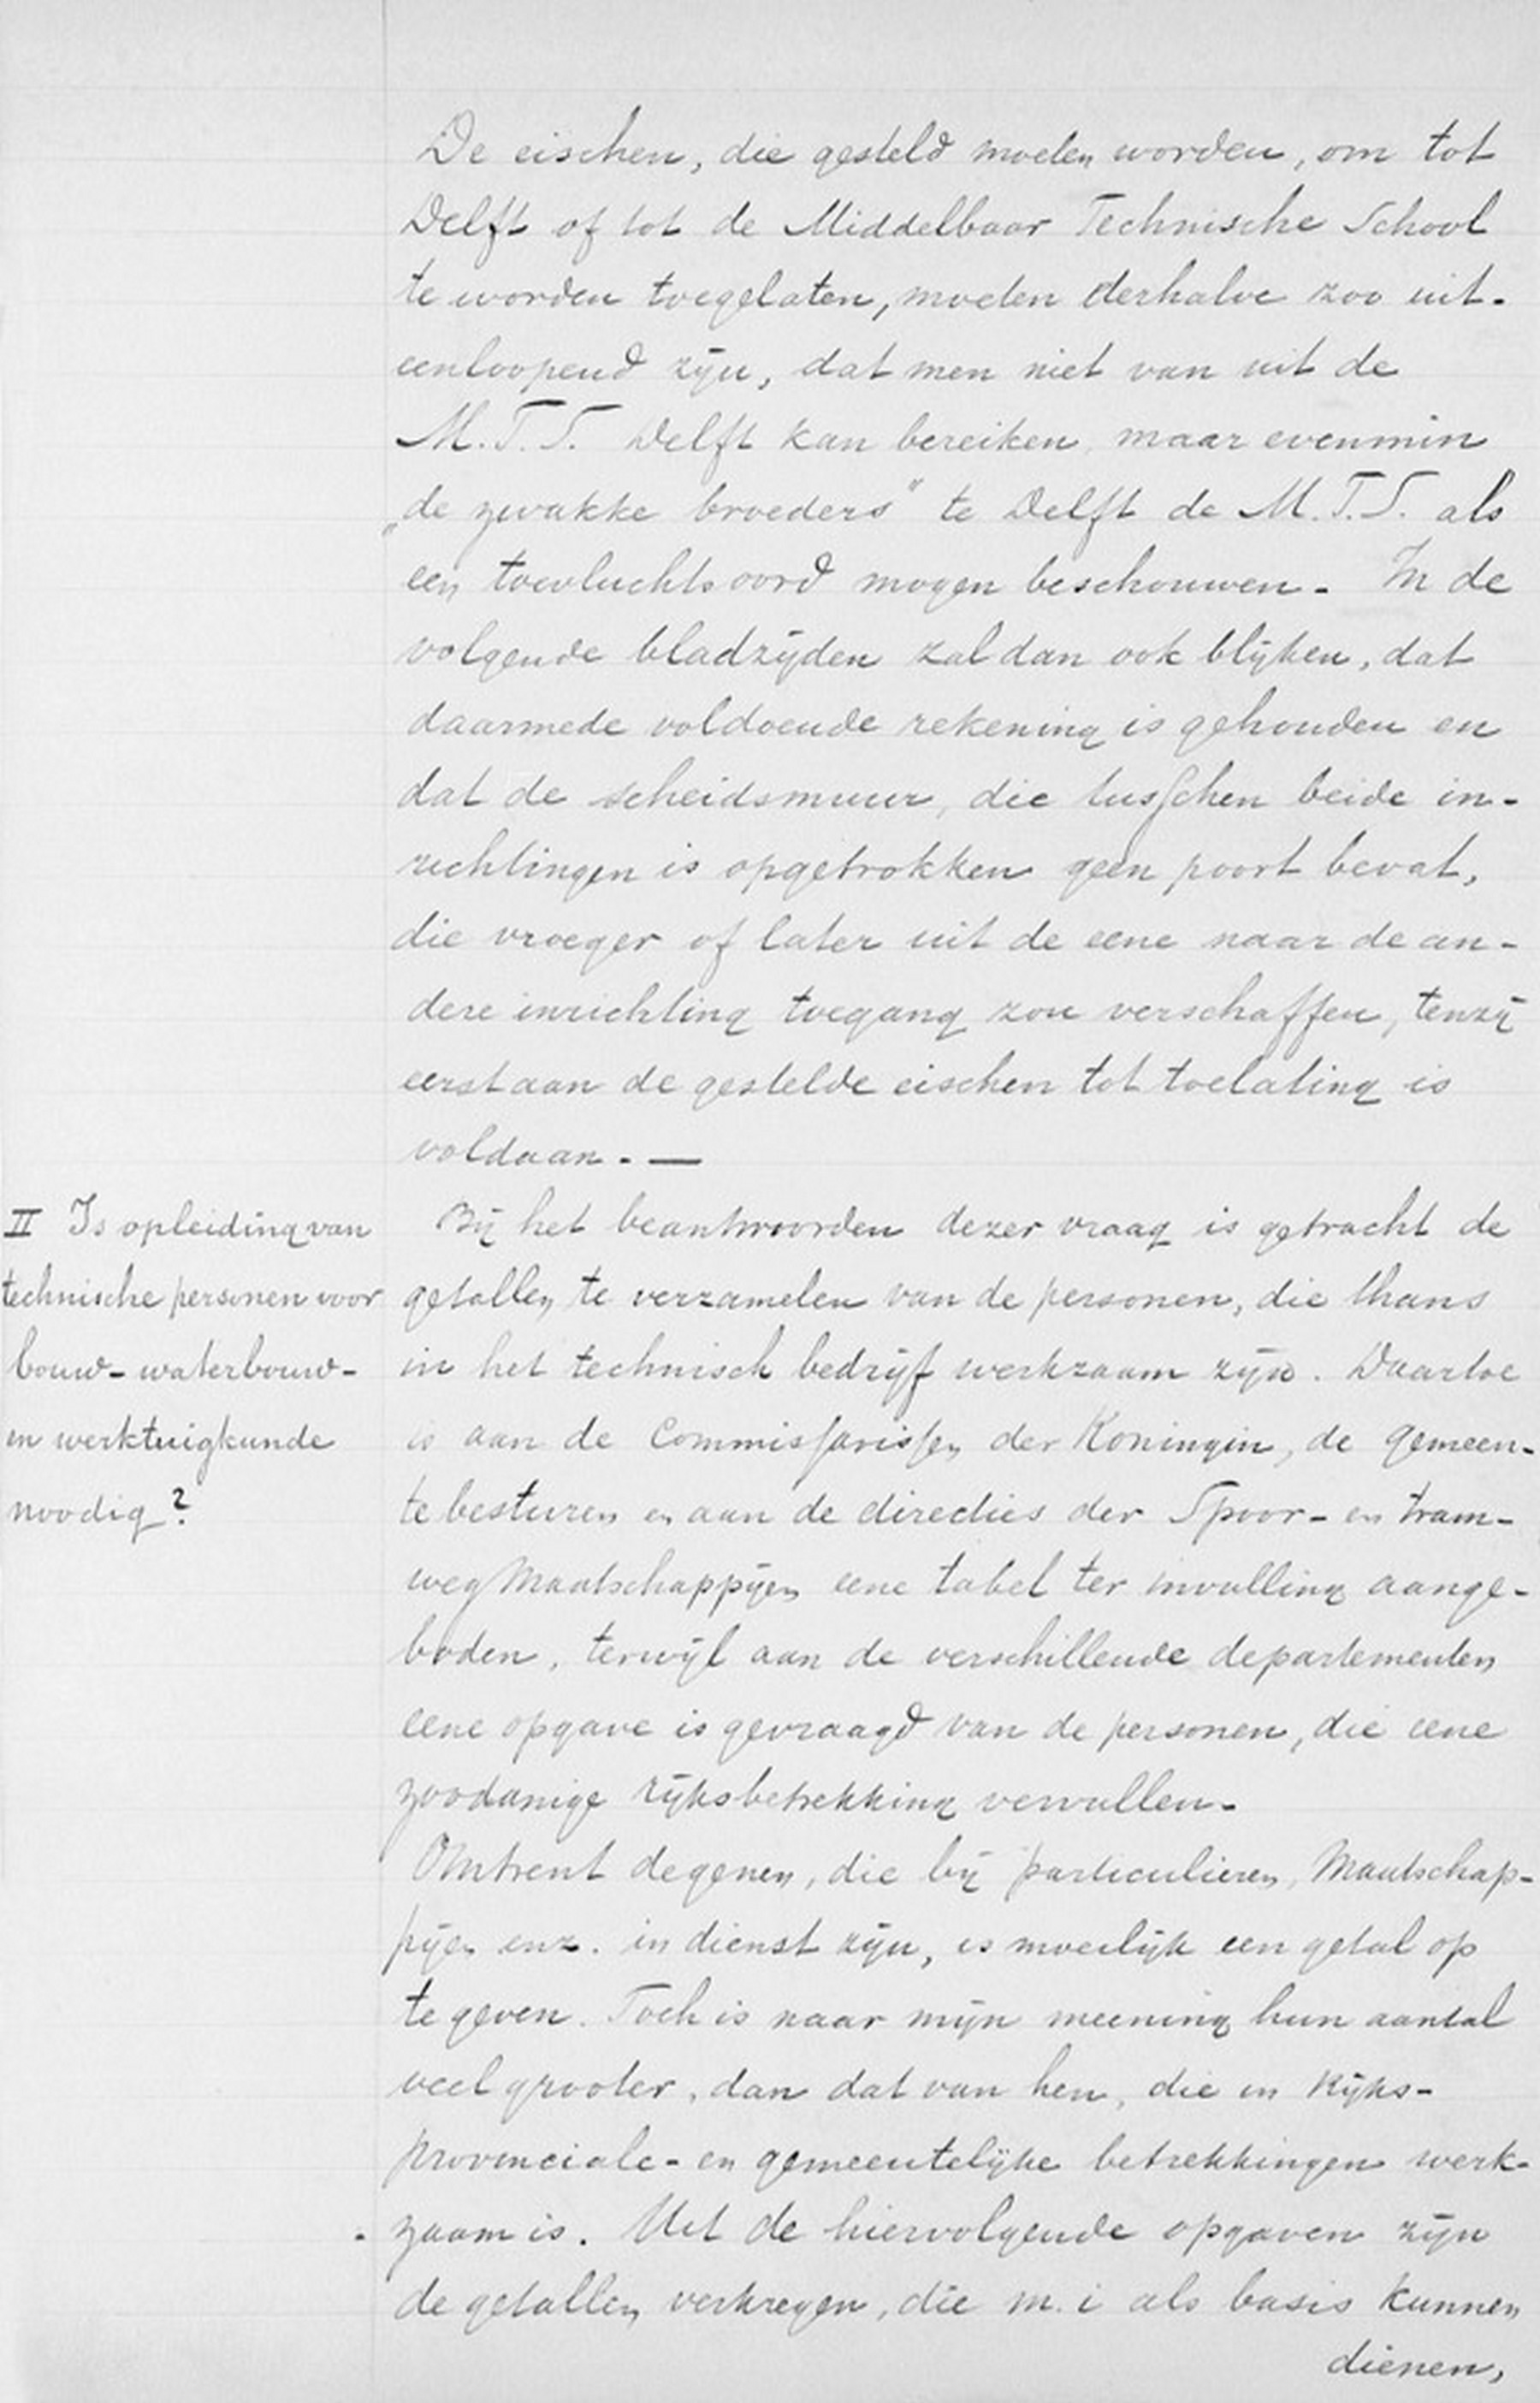 De eischen, die gesteld moeten worden, om tot
Delft of tot de Middelbaar Technische School
te worden toegelaten, moeten derhalve zoo uit-
eenloopend zijn, dat men niet van uit de
M.T.S. Delft kan bereiken, maar evenmin
„de zwakke broeders" te Delft de M.T.S. als
een toevluchtsoord mogen beschouwen. In de
volgende bladzijden zal dan ook blijken, dat
daarmede voldoende rekening is gehouden en
dat de scheidsmuur, die tusschen beide in-
richtingen is opgetrokken geen poort bevat,
die vroeger of later uit de eene naar de an-
dere inrichting toegang zou verschaffen, tenzij
eerst aan de gestelde eischen tot toelating is
voldaan. —
II Is opleiding van
technische personen voor
bouw- waterbouw-
en werktuigkunde
noodig?
Bij het beantwoorden dezer vraag is getracht de
getallen te verzamelen van de personen, die thans
in het technisch bedrijf werkzaam zijn. Daartoe
is aan de Commissarissen der Koningin, de gemeen-
tebesturen en aan de directies der Spoor- en tram-
weg Maatschappijen eene tabel ter invulling aange-
boden, terwijl aan de verschillende departementen
eene opgave is gevraagd van de personen, die eene
zoodanige rijksbetrekking vervullen.
Omtrent degenen, die bij particulieren, Maatschap-
pijen enz. in dienst zijn, is moeilijk een getal op
te geven. Toch is naar mijn meening hun aantal
veel grooter, dan dat van hen, die in Rijks-
provinciale- en gemeentelijke betrekkingen werk-
zaam is. Uit de hiervolgende opgaven zijn
de getallen verkregen, die m.i als basis kunnen
dienen,